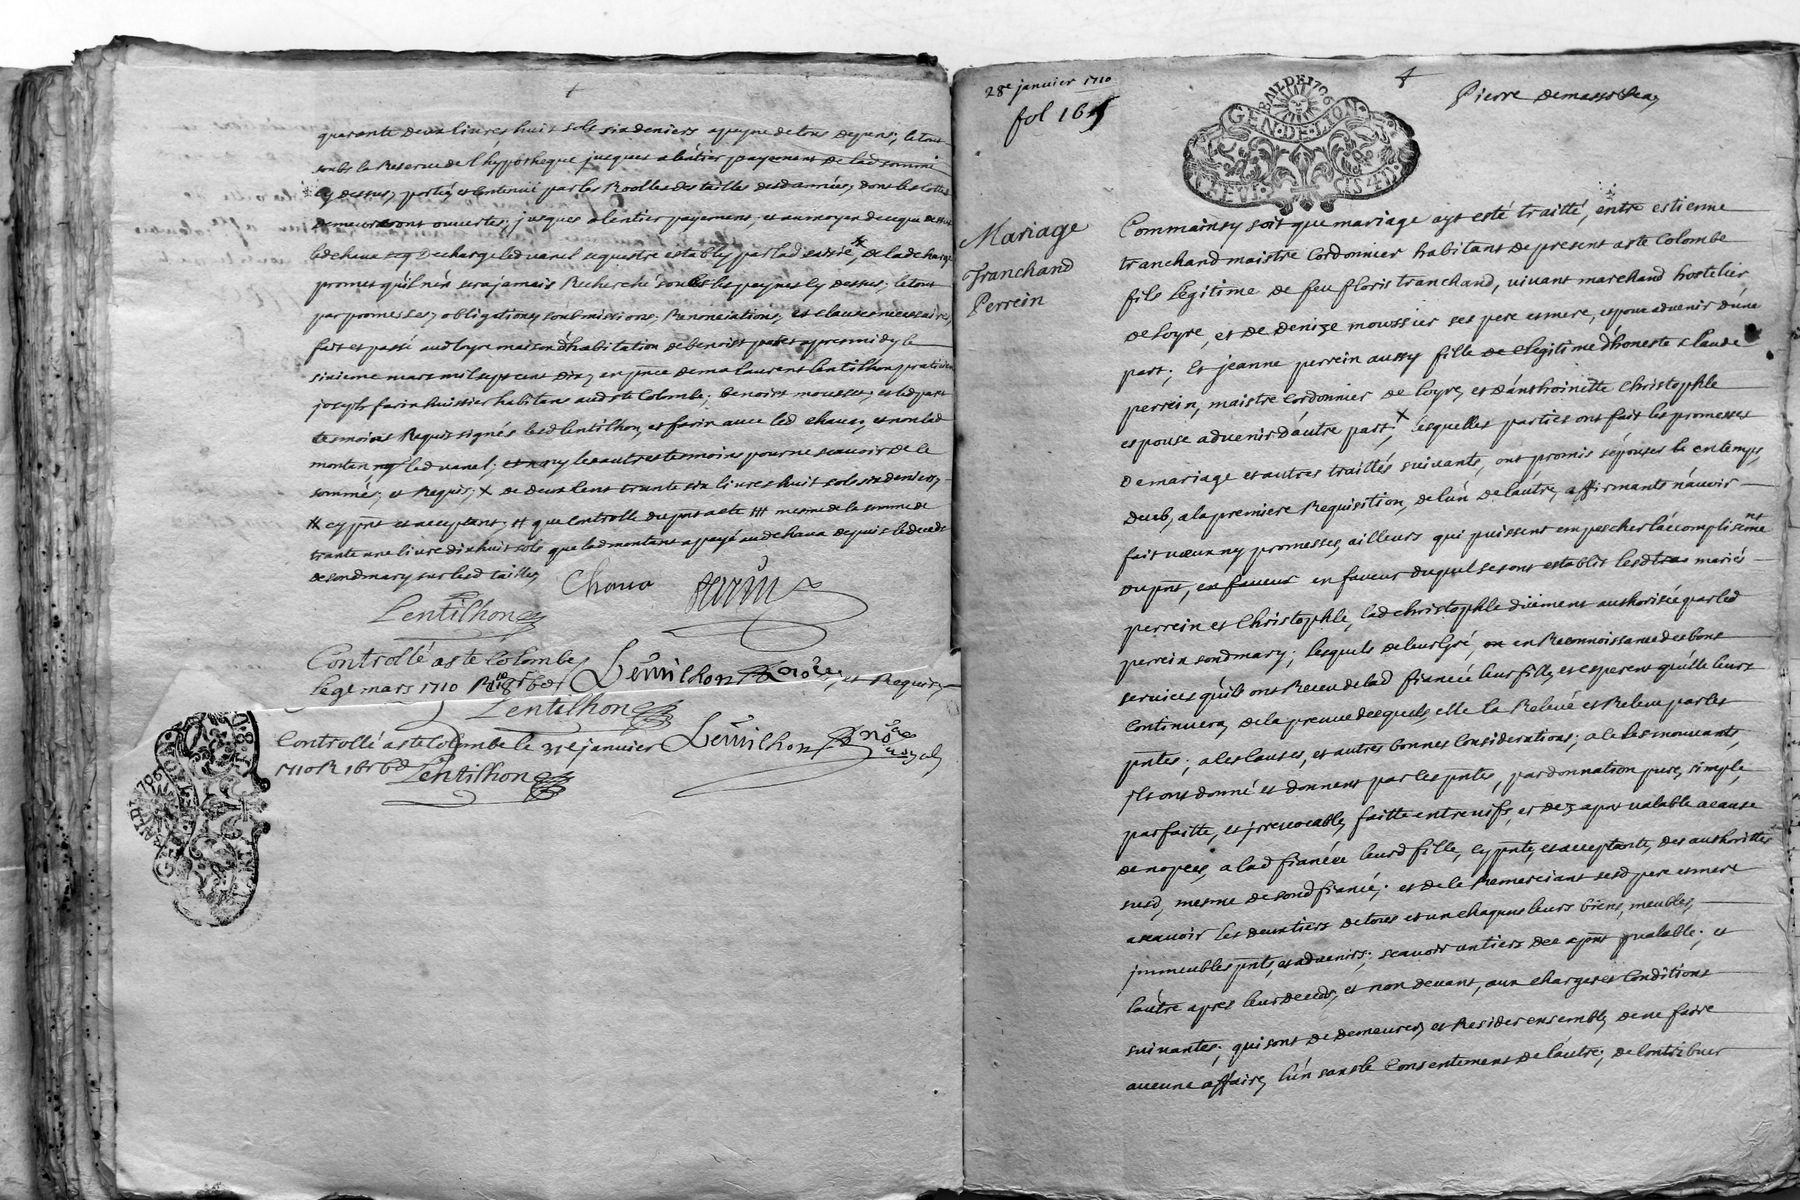 quarante deux livres huit sols six deniers a peyne de tous depens, le tout
soubs la Reserve de l'hypotheque jusques a lentier payement de lad somme
cy dessus, portée et contenue par les Roolles des tailles desd années, dont les cottes
demeureront ouvertes, jusques a lentier payement, et au moyen de ce que dessus
led chaua decharge led vanel sequestre estably par lad saisie, de lad charge
promet qu'il n'en sera jamais Recherché soubs les peynes cy dessus, le tout
par promesses, obligations, soubmissions, Renonciations, et clauses necessaires,
fait et passé aud loyre maison d'habitation de benoist apres midy le
sixieme mars mil sept cent dix, en pnce de mr laurent lentilhon praticien
joseph farin huissier habitans aud ste Colombe, benoist mousset, et led
tesmoins Requis signés lesd lentilhon, et farin avec led chaua, et non lad
montan ny led vanel, les autres tesmoins pour ne scavoir de ce
sommés, et Requis, x de deux cent trante six livres huit sols six deniers,
cy pnt et acceptant, # que Controlle du pnt acte ### mesme de la somme de
trante une livre dix huit sols que lad montant a payé aud chaua depuis le deceds
de sond mary sur lesd tailles
Chaua farin
Lentilhon
Controllé a ste Colombe
le 9e mars 1710
Lentilhon
Controllé a ste Colombe le 31e janvier
1710
Lentilhon
28e janvier 1710
fol 165
BAIL DE 1706
GEN · DE · LION
Mariage
Tranchand
Perrein
Comm'ainsy soit que mariage ayt esté traitté, entre estienne
tranchand maistre Cordonnier habitant de present a ste Colombe
fils Legitime de feu floris tranchand, vivant marchand hostelier
de loyre, et de denize moussier ses pere et mere, espoux advenir d'une
part; Et jeanne perrein aussy fille Legitime d'honeste claude
perrein, maistre Cordonnier de loyre, et d'anthoinette christophle
espouse advenir d'autre part, x lesquelles parties ont fait les promesses
de mariage et autres traittés suivants, ont promis s'épouser le temps
deub, a la premiere Requisition, de l'un de lautre, affirmants n'avoir
fait vœux ny promesses, ailleurs qui puissent empescher l'acomplissement
du pnt, en faveur en faveur duquel se sont establis lesd mariés
perrein et Christophle, lad christophle düement authorisée par led
perrein sond mary; lesquels de leur Gré, en Reconnoissance des bons
services qu'ils ont Receu de lad fiancée leur fille, et esperent qu'elle leurs
Continuera, de la preuve desquels, elle la Relevé et Releve par les
pntes; a les causes, et autres bonnes Considerations; a ce les mouvants,
Ils ont donné et donnent par les pntes, par donnation pure, simple,
parfaitte, et jrrevocable, faitte entre vifs, et dez a pnt valable a cause
de nopces, a lad fiancée leurd fille, cy pnte, et acceptante, des authorittés
susd, mesme de sond fiancé; et de ce Remerciant sesd pere et mere
ascavoir les deux tiers de tous et un chaquns leurs biens, meubles,
jmmeubles pnts, et advenirs; scavoir un tiers dez a pnt valable; et
lautre apres leur deceds, et non devant, aux charges et Conditions
suivantes, qui sont de demeurer, et Resider ensemble, de ne faire
aucune affaire, l'un sans le Consentement de l'autre; de Contribuer